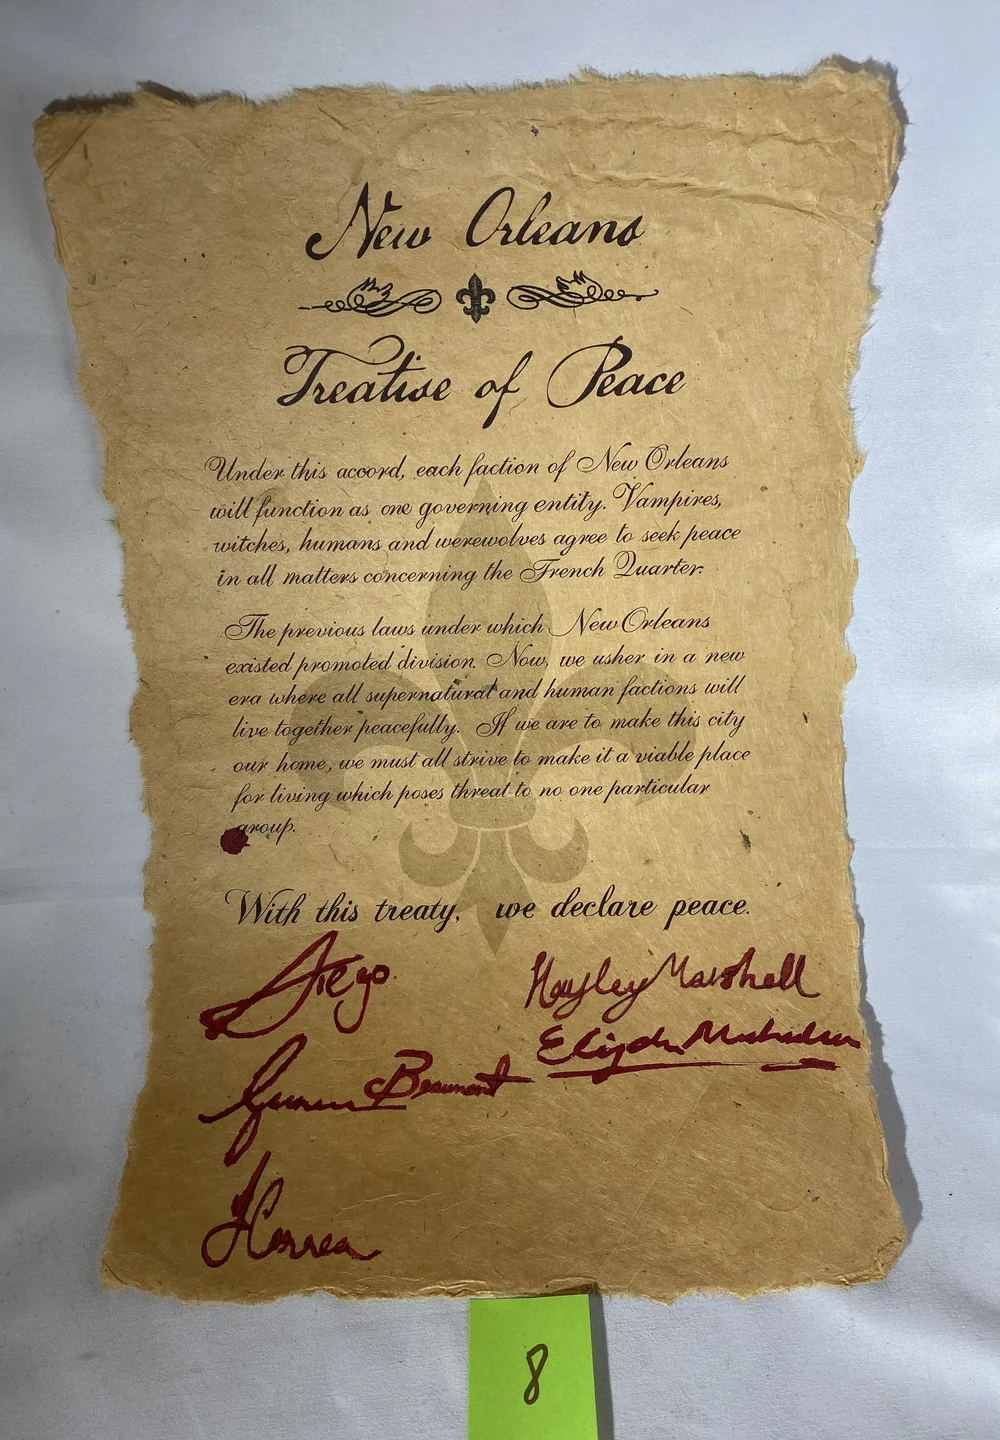 New Orleans
Treatise of Peace
Under this accord, each faction of New Orleans
will function as one governing entity. Vampires,
witches, humans and werewolves agree to seek peace
in all matters concerning the French Quarter.
The previous laws under which New Orleans
existed promoted division. Now, we usher in a new
era where all supernatural and human factions will
live together peacefully. If we are to make this city
our home, we must all strive to make it a viable place
for living which poses threat to no one particular
group.
With this treaty, we declare peace.
Diego
Hayley Marshall
Elijah Mikaelson
Beaumont
8